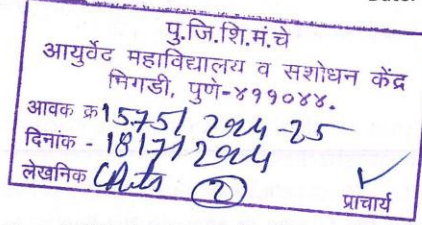 पु.जि.शि.मं.चे
आयुर्वेद महाविद्यालय व सशोधन केंद्र
निगडी, पुणे-४११०४४.
आवक क्र 1575/ 2024-25
दिनांक - 18/7/2024
लेखनिक (2)
प्राचार्य